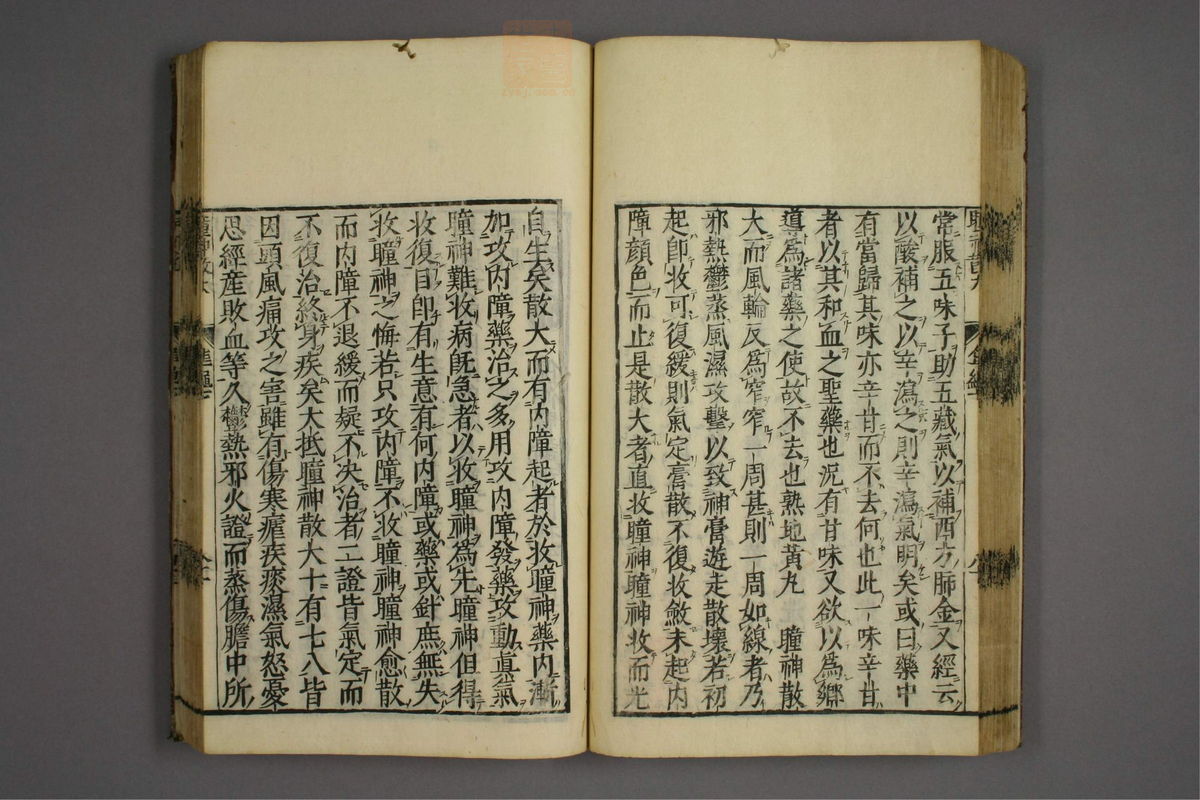 常服五味子助五藏氣以補西方肺金又經云
以酸補之以辛瀉之則辛瀉氣明矣或曰藥中
有當歸其味亦辛甘而不去何也此一味辛甘
者以其和血之聖藥也況有甘味又欲以為鄉
導為諸藥之使故不去也熟地黃丸　瞳神散
大而風輪反為窄窄一周甚則一周如線者乃
邪熱鬱蒸風濕攻擊以致神膏遊走散壞若初
起即收可復緩則氣定膏散不復收斂未起內
障顏色而止是散大者直收瞳神瞳神收而光
自生矣散大而有內障起者於收瞳神藥內漸
加攻內障藥治之多用攻內障發藥攻動真氣
瞳神難收病既急者以收瞳神為先瞳神但得
收復目即有生意有何內障或藥或針庶無失
收瞳神之悔若只攻內障不收瞳神瞳神愈散
而內障不退緩而疑不決治者二證皆氣定而
不復治終身疾矣大抵瞳神散大十有七八皆
因頭風痛攻之害雖有傷寒瘧疾痰濕氣怒憂
思經產敗血等久鬱熱邪火證而蒸傷膽中所